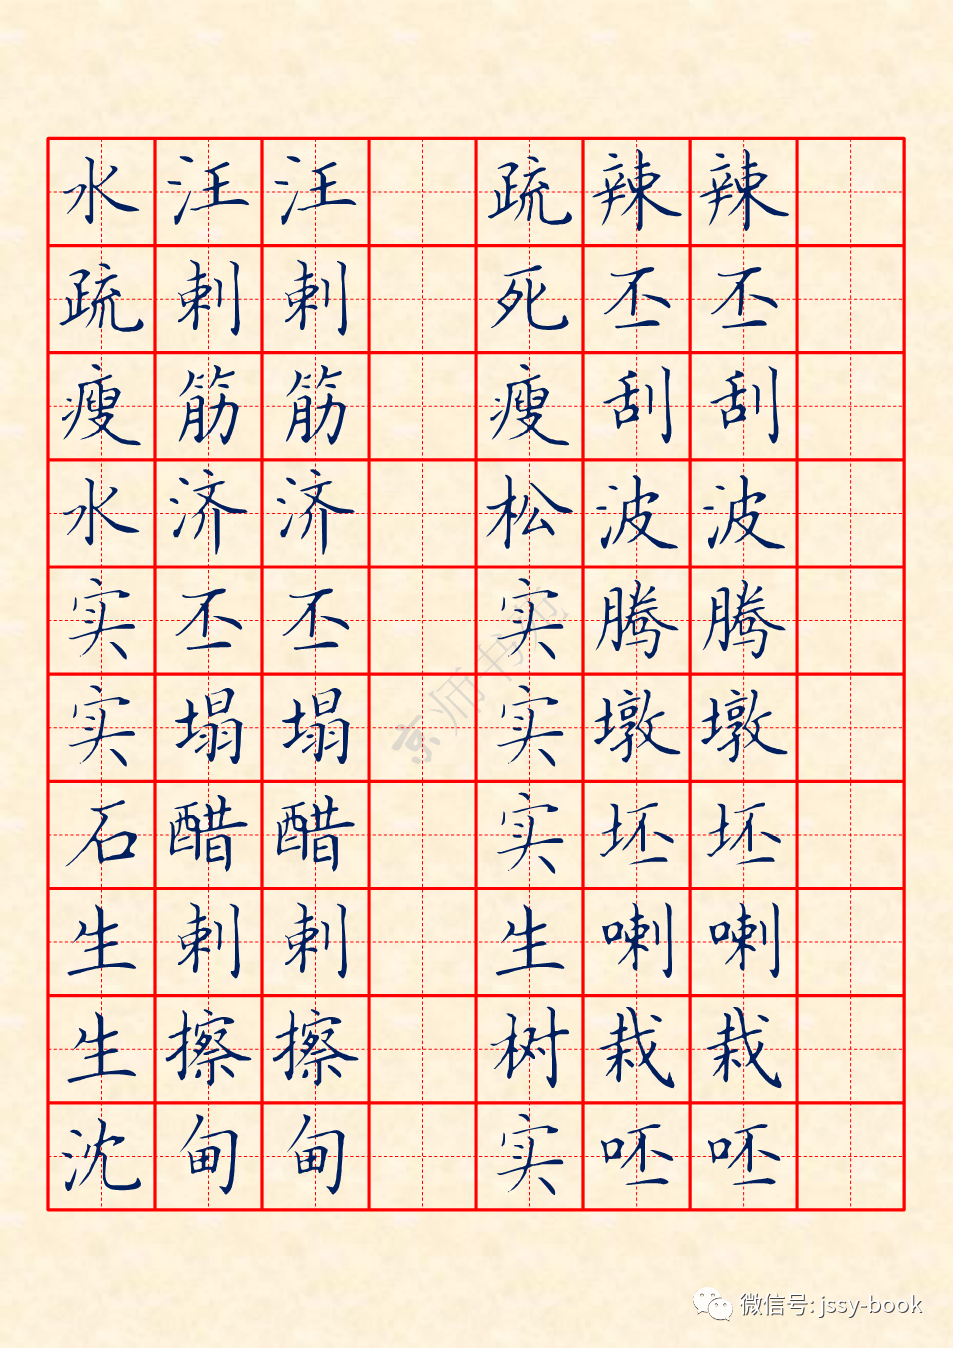 水汪汪 疏辣辣
疏剌剌 死丕丕
瘦筋筋 瘦刮刮
水济济 松波波
实丕丕 实腾腾
实塌塌 实墩墩
石醋醋 实坯坯
生剌剌 生喇喇
生擦擦 树栽栽
沈甸甸 实呸呸
京师书苑
微信号: jssy-book